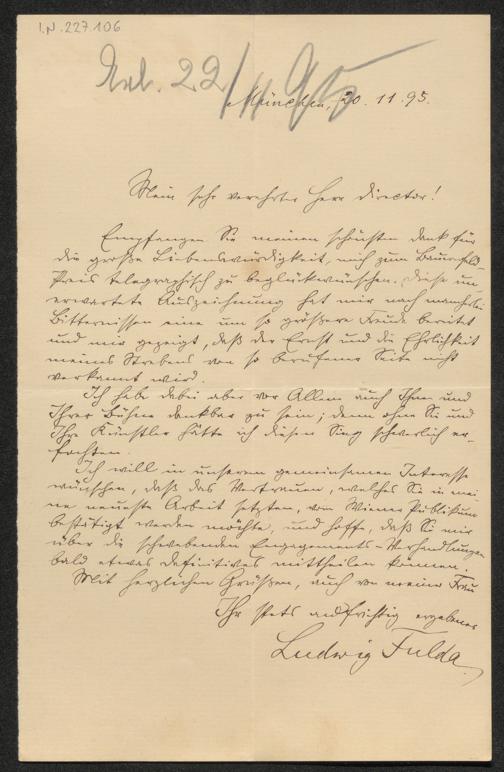 I.N. 227.106
Erl. 22/11 95
München, 20. 11. 95.
Mein sehr verehrter Herr Director!
Empfangen Sie meinen schönsten Dank für
die große Liebenswürdigkeit, mich zum Bauernfeld-
Preis telegraphisch zu beglückwünschen. Diese un-
erwartete Auszeichnung hat mir nach mancherlei
Bitternissen eine um so größere Freude bereitet
und mir gezeigt, daß der Ernst und die Ehrlichkeit
meines Strebens von so berufener Seite nicht
verkannt wird.
Ich habe dabei aber vor Allem auch Ihnen und
Ihrer Bühne dankbar zu sein; denn ohne Sie und
Ihre Künstler hätte ich diesen Sieg schwerlich er-
fochten.
Ich will in unserem gemeinsamen Interesse
wünschen, daß das Vertrauen, welches Sie in mei-
ne neueste Arbeit setzten, vom Wiener Publikum
bestätigt werden möchte, und hoffe, daß Sie mir
über die schwebenden Engagements-Verhandlungen
bald etwas Definitives mittheilen können.
Mit herzlichen Grüßen, auch von meiner Frau
Ihr stets aufrichtig ergebener
Ludwig Fulda